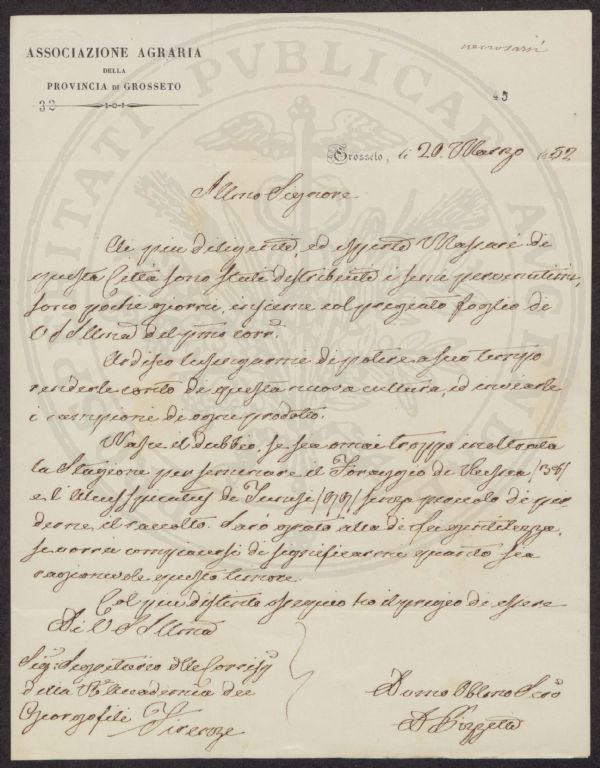 ASSOCIAZIONE AGRARIA
DELLA
PROVINCIA DI GROSSETO
32
necrosarsi
45
PROSPERITATI PVBLICAE AVGENDAE
Grosseto, li 20. Marzo 1852
Illmo Signore
Ai più diligenti, ed esperti Massari di
questa Città sono stati distribuiti i semi pervenutimi,
sono pochi giorni, insieme col pregiato foglio di
V S Illma del pmo corr.
Ardisco lusingarmi di potere a suo tempo
renderle conto di questa nuova cultura, ed inviarle
i campioni di ogni prodotto.
Nasce il dubbio, se sia omai troppo inoltrata
la Stagione per seminare il Foraggio di Russia
e l' di Tunisi senza pericolo di per-
derne il raccolto. Sarò grato alla di Lei gentilezza,
se vorrà compiacersi di significarmi quanto sia
ragionevole questo timore.
Col più distinto ossequio ho il pregio di essere
Di V S Illma
Sig: Segretario delle Corrisp
della R. Accademia dei
Georgofili Firenze
Dvmo Obbmo Servo